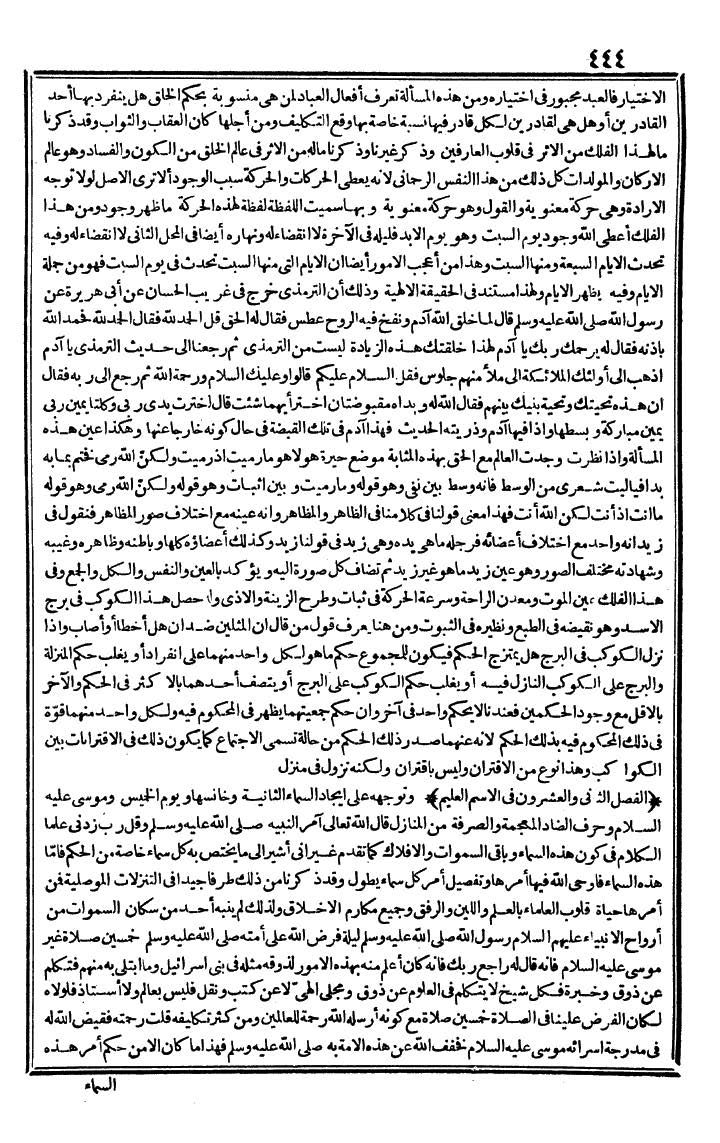 ٤٤٤
الاختيار فالعبد مجبور فى اختياره ومن هذه المسألة تعرف أفعال العباد لمن هى منسوبة بحكم الخلق هل ينفرد بها أحد
القادرين أو هل هى لقادرين لكل قادر فيها نسبة خاصة بها وقع التكليف ومن أجلها كان العقاب والثواب وقد ذكرنا
ما لهذا الفلك من الاثر فى قلوب العارفين وذكر غيرنا وذكرنا ماله من الاثر فى عالم الخلق من الكون والفساد وهو عالم
الاركان والمولدات كل ذلك من هذا النفس الرحمانى لانه يعطى الحركات والحركة سبب الوجود ألا ترى الاصل لولا توجه
الارادة وهى حركة معنوية والقول وهو حركة معنوية وبها سميت اللفظة لفظة لهذه الحركة ما ظهر وجود ومن هذا
الفلك أعطى الله وجود يوم السبت وهو يوم الابد فليله فى الآخرة لا انقضاء له ونهاره أيضا فى المحل الثانى لا انقضاء له وفيه
تحدث الايام السبعة ومنها السبت وهذا من أعجب الامور أيضا ان الايام التى منها السبت تحدث فى يوم السبت فهو من جملة
الايام وفيه يظهر الايام ولهذا مستند فى الحقيقة الالهية وذلك أن الترمذى خرج فى غريب الحسان عن أبى هريرة عن
رسول الله صلى الله عليه وسلم قال لما خلق الله آدم ونفخ فيه الروح عطس فقال له الحق قل الحد لله فقال الحمد لله فحمد الله
باذنه فقال له يرحمك ربك يا آدم لهذا خلقتك هذه الزيادة ليست من الترمذى ثم رجعنا الى حديث الترمذى يا آدم
اذهب الى أولئك الملائكة الى ملأ منهم جلوس فقل السلام عليكم قالوا وعليك السلام ورحمة الله ثم رجع الى ربه فقال
ان هذه تحيتك وتحية بنيك بينهم فقال الله له ويداه مقبوضتان اختر أيهما شئت قال اخترت يدى ربى وكلتا يمين ربى
يمين مباركة وبسطها واذا فيها آدم وذريته الحديث فهذا آدم فى تلك القبضة فى حال كونه خارجا عنها وهكذا عين هذه
المسألة واذا نظرت وجدت العالم مع الحق بهذه المثابة موضع حيرة هو لا هو ما رميت اذ رميت ولكن الله رمى فختم بما به
بدا فيا ليت شعرى من الوسط فانه وسط بين نفى وهو قوله وما رميت وبين اثبات وهو قوله ولكن الله رمى وهو قوله
ما انت اذ أنت لكن الله أنت فهذا معنى قولنا فى كلامنا فى الظاهر والمظاهر وانه عينه مع اختلاف صور المظاهر فنقول فى
زيد انه واحد مع اختلاف أعضائه فرجله ما هى يده وهى زيد فى قولنا زيد وكذلك أعضاؤه كلها وباطنه وظاهره وغيبه
وشهادته مختلف الصور وهو عين زيد ما هو غير زيد ثم تضاف كل صورة اليه ويؤكد بالعين والنفس والكل والجمع وفى
هذا الفلك عين الموت ومعدن الراحة وسرعة الحركة فى ثبات وطرح الزينة والاذى وله حصل هذا الكوكب فى برج
الاسد وهو نقيضه فى الطبع ونظيره فى الثبوت ومن هنا يعرف قول من قال ان المثلين ضدان هل أخطأ أو أصاب واذا
نزل الكوكب فى البرج هل يمتزج الحكم فيكون للمجموع حكم ما هو لكل واحد منهما على انفراد أو يغلب حكم المنزلة
والبرج على الكوكب النازل فيه أو يغلب حكم الكوكب على البرج أو يتصف أحدهما بالاكثر فى الحكم والآخر
بالاقل مع وجود الحكمين فعندنا لا يحكم واحد فى آخر وان حكم جمعيتهما يظهر فى المحكوم فيه ولكل واحد منهما قوّة
فى ذلك المحكوم فيه بذلك الحكم لانه عنهما صدر ذلك الحكم من حالة تسمى الاجتماع كما يكون ذلك فى الاقترانات بين
الكواكب وهذا نوع من الاقتران وليس باقتران ولكنه نزول فى منزل
﴿الفصل الثانى والعشرون فى الاسم العليم﴾ وتوجهه على ايجاد السماء الثانية وخانسها ويوم الخميس وموسى عليه
السلام وحرف الضاد المعجمة والصرفة من المنازل قال الله تعالى آمر النبيه صلى الله عليه وسلم وقل رب زدنى علما
الكلام فى كون هذه السماء وباقى السموات والافلاك كما تقدم غير انى أشير الى ما يختص به كل سماء خاصة من الحكم فامّا
هذه السماء فاوحى الله فيها أمرها وتفصيل أمر كل سماء يطول وقد ذكرنا من ذلك طرفا جيدا فى التنزلات الموصلية فمن
أمرها حياة قلوب العلماء بالعلم واللين والرفق وجميع مكارم الاخلاق ولذلك لم ينبه أحد من سكان السموات من
أرواح الانبياء عليهم السلام رسول الله صلى الله عليه وسلم ليلة فرض الله على أمته صلى الله عليه وسلم خمسين صلاة غير
موسى عليه السلام فانه قال له راجع ربك فانه كان أعلم منه بهذه الامور لذوقه مثله فى بنى اسرائيل وما ابتلى به منهم فتكلم
عن ذوق وخبرة فكل شيخ لا يتكلم فى العلوم عن ذوق ومجلى الهىّ لا عن كتب ونقل فليس بعالم ولا أستاذ فلولاه
لكان الفرض علينا فى الصلاة خمسين صلاة مع كونه أرسله الله رحمة للعالمين ومن كثرتكاليفه قلت رحمته فقيض الله له
فى مدرجة اسرائه موسى عليه السلام فخفف الله عن هذه الامة به صلى الله عليه وسلم فهذا ما كان الا من حكم أمر هذه
السماء